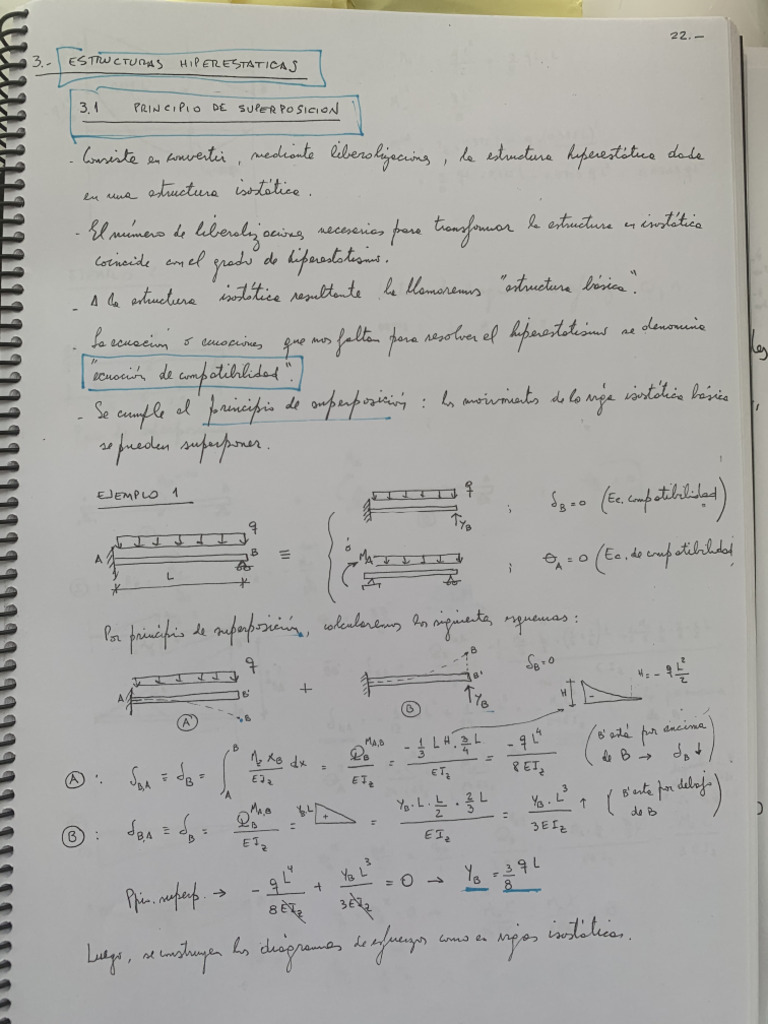 22.-
3.- ESTRUCTURAS HIPERESTATICAS
3.1 PRINCIPIO DE SUPERPOSICION
- Consiste en convertir, mediante liberalizaciones, la estructura hiperestática dada
en una estructura isostática.
- El número de liberalizaciones necesarias para transformar la estructura en isostática
coincide con el grado de hiperestatismo.
- A la estructura isostática resultante la llamaremos "estructura básica".
- La ecuación o ecuaciones que nos faltan para resolver el hiperestatismo se denomina
"ecuación de compatibilidad".
- Se cumple el principio de superposición: los movimientos de la viga isostática básica
se pueden superponer.
EJEMPLO 1
q
Y_B
; δ_B = 0 (Ec. compatibilidad)
A B q L ≡
ó
M_A
; θ_A = 0 (Ec. de compatibilidad
Por principio de superposición, calcularemos los siguientes esquemas:
A q B' B (A) + B B' Y_B (B) δ_B = 0 H - H = -q L²/2
(A): δ_B,A ≡ δ_B = ∫_A^B M_z x_B / EI_z dx = Q_B^{M_A,B} / EI_z = (-1/3 L H · 3/4 L) / EI_z = -q L⁴ / 8EI_z (B' está por encima
de B → δ_B ↓)
(B): δ_B,A ≡ δ_B = Q_B^{M_A,B} / EI_z = Y_B·L + = (Y_B · L · L/2 · 2/3 L) / EI_z = Y_B · L³ / 3EI_z ↑ (B' esta por debajo
de B)
Ppio. superp. → - q L⁴ / 8EI_z + Y_B L³ / 3EI_z = 0 → Y_B = 3/8 q L
Luego, se construyen los diagramas de esfuerzos como en vigas isostáticas.